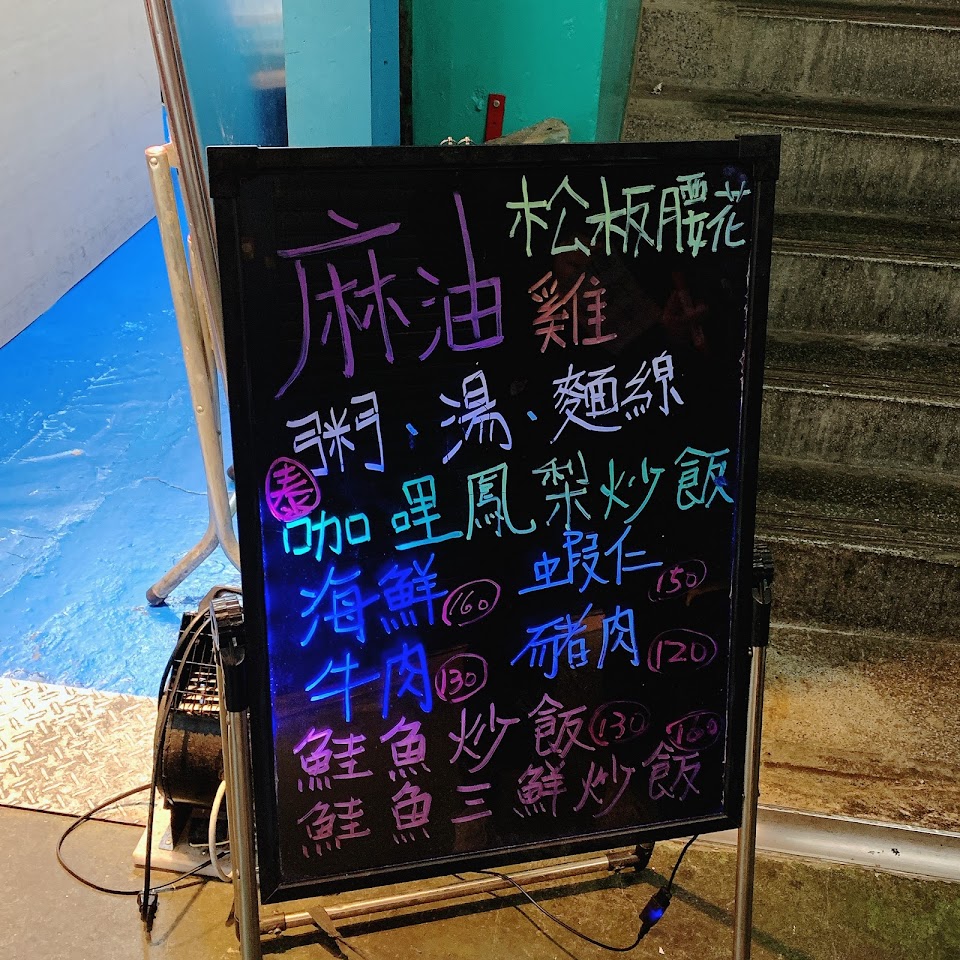 松板腰花
麻油雞
粥、湯、麵線
泰
咖哩鳳梨炒飯
海鮮160 蝦仁150
牛肉130 豬肉120
鮭魚炒飯130
鮭魚三鮮炒飯160